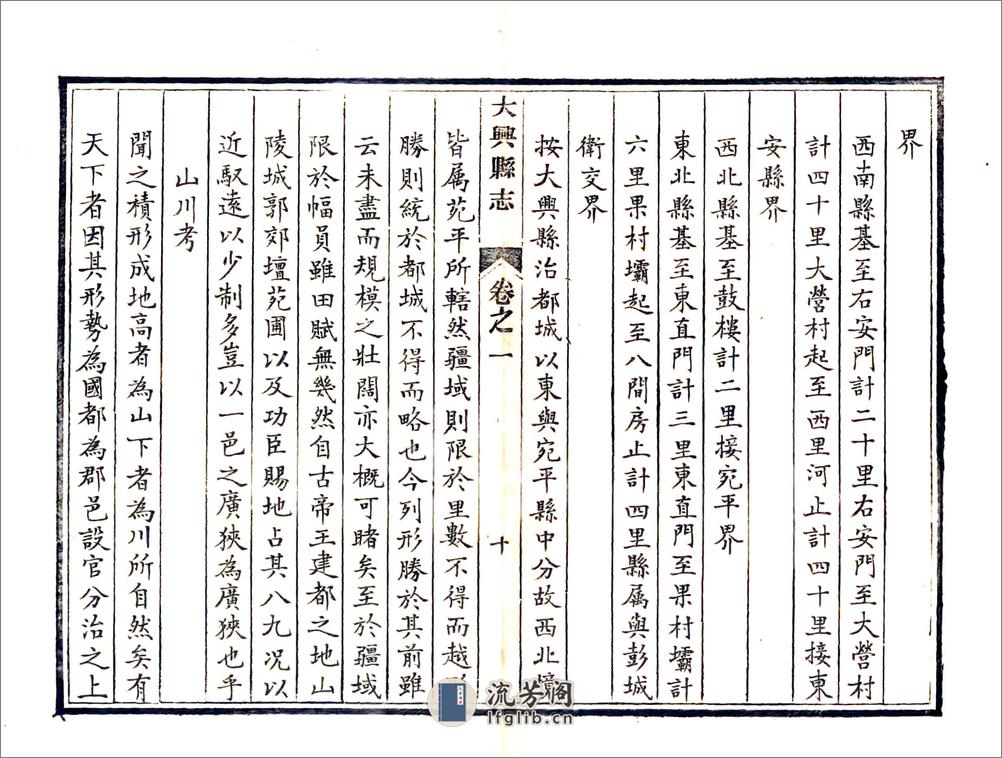 界
西南縣基至右安門計二十里右安門至大營村
計四十里大營村起至西里河止計四十里接東
安縣界
西北縣基至鼓樓計二里接宛平界
東北縣基至東直門計三里東直門至果村壩計
六里果村壩起至八間房止計四里縣属與彭城
衛交界
按大興縣治都城以東與宛平縣中分故西北境
大興縣志
卷之一
十
皆属苑平所轄然疆域則限於里數不得而越
勝則統於都城不得而略也今列形勝於其前雖
云未盡而規模之壯闊亦大概可睹矣至於疆域
限於幅員雖田賦無幾然自古帝王建都之地山
陵城郭郊壇苑圃以及功臣賜地占其八九况以
近馭遠以少制多豈以一邑之廣狹為廣狹也乎
山川考
聞之積形成地高者為山下者為川所自然矣有
天下者因其形勢為國都為郡邑設官分治之上
流芳閣
lfglib.cn